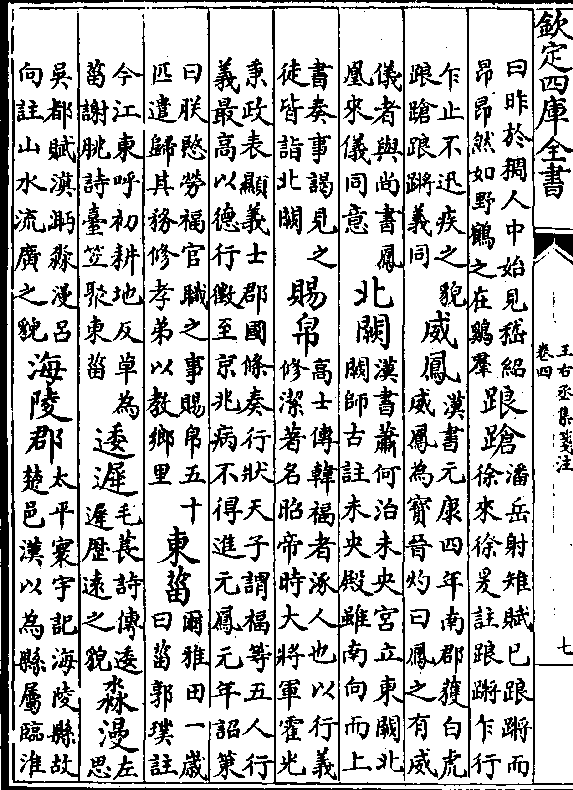 欽定四庫全書
王右丞集箋注
卷四
七
曰昨於稠人中始見嵇紹
昂昂然如野鶴之在鷄羣
踉蹌
潘岳射雉賦已踉蹡而
徐來徐爰註踉蹡乍行
乍止不迅疾之貌
踉蹌踉蹡義同
威鳳
漢書元康四年南郡獲白虎
威鳳為寶晉灼曰鳳之有威
儀者與尚書鳳
凰來儀同意
北闕
漢書蕭何治未央宮立東闕北
闕師古註未央殿雖南向而上
書奏事謁見之
徒皆詣北闕
賜帛
高士傳韓福者涿人也以行義
修潔著名昭帝時大將軍霍光
秉政表顯義士郡國條奏行狀天子謂福等五人行
義最高以德行徵至京兆病不得進元鳳元年詔策
曰朕愍勞福官職之事賜帛五十
匹遣歸其務修孝弟以教鄉里
東菑
爾雅田一歲
曰菑郭璞註
今江東呼初耕地反草為
菑謝朓詩臺笠聚東菑
逶遲
毛萇詩傳逶
遲歷遠之貌
淼漫
左
思
吳都賦滇㴐淼漫呂
向註山水流廣之貌
海陵郡
太平寰宇記海陵縣故
楚邑漢以為縣屬臨淮